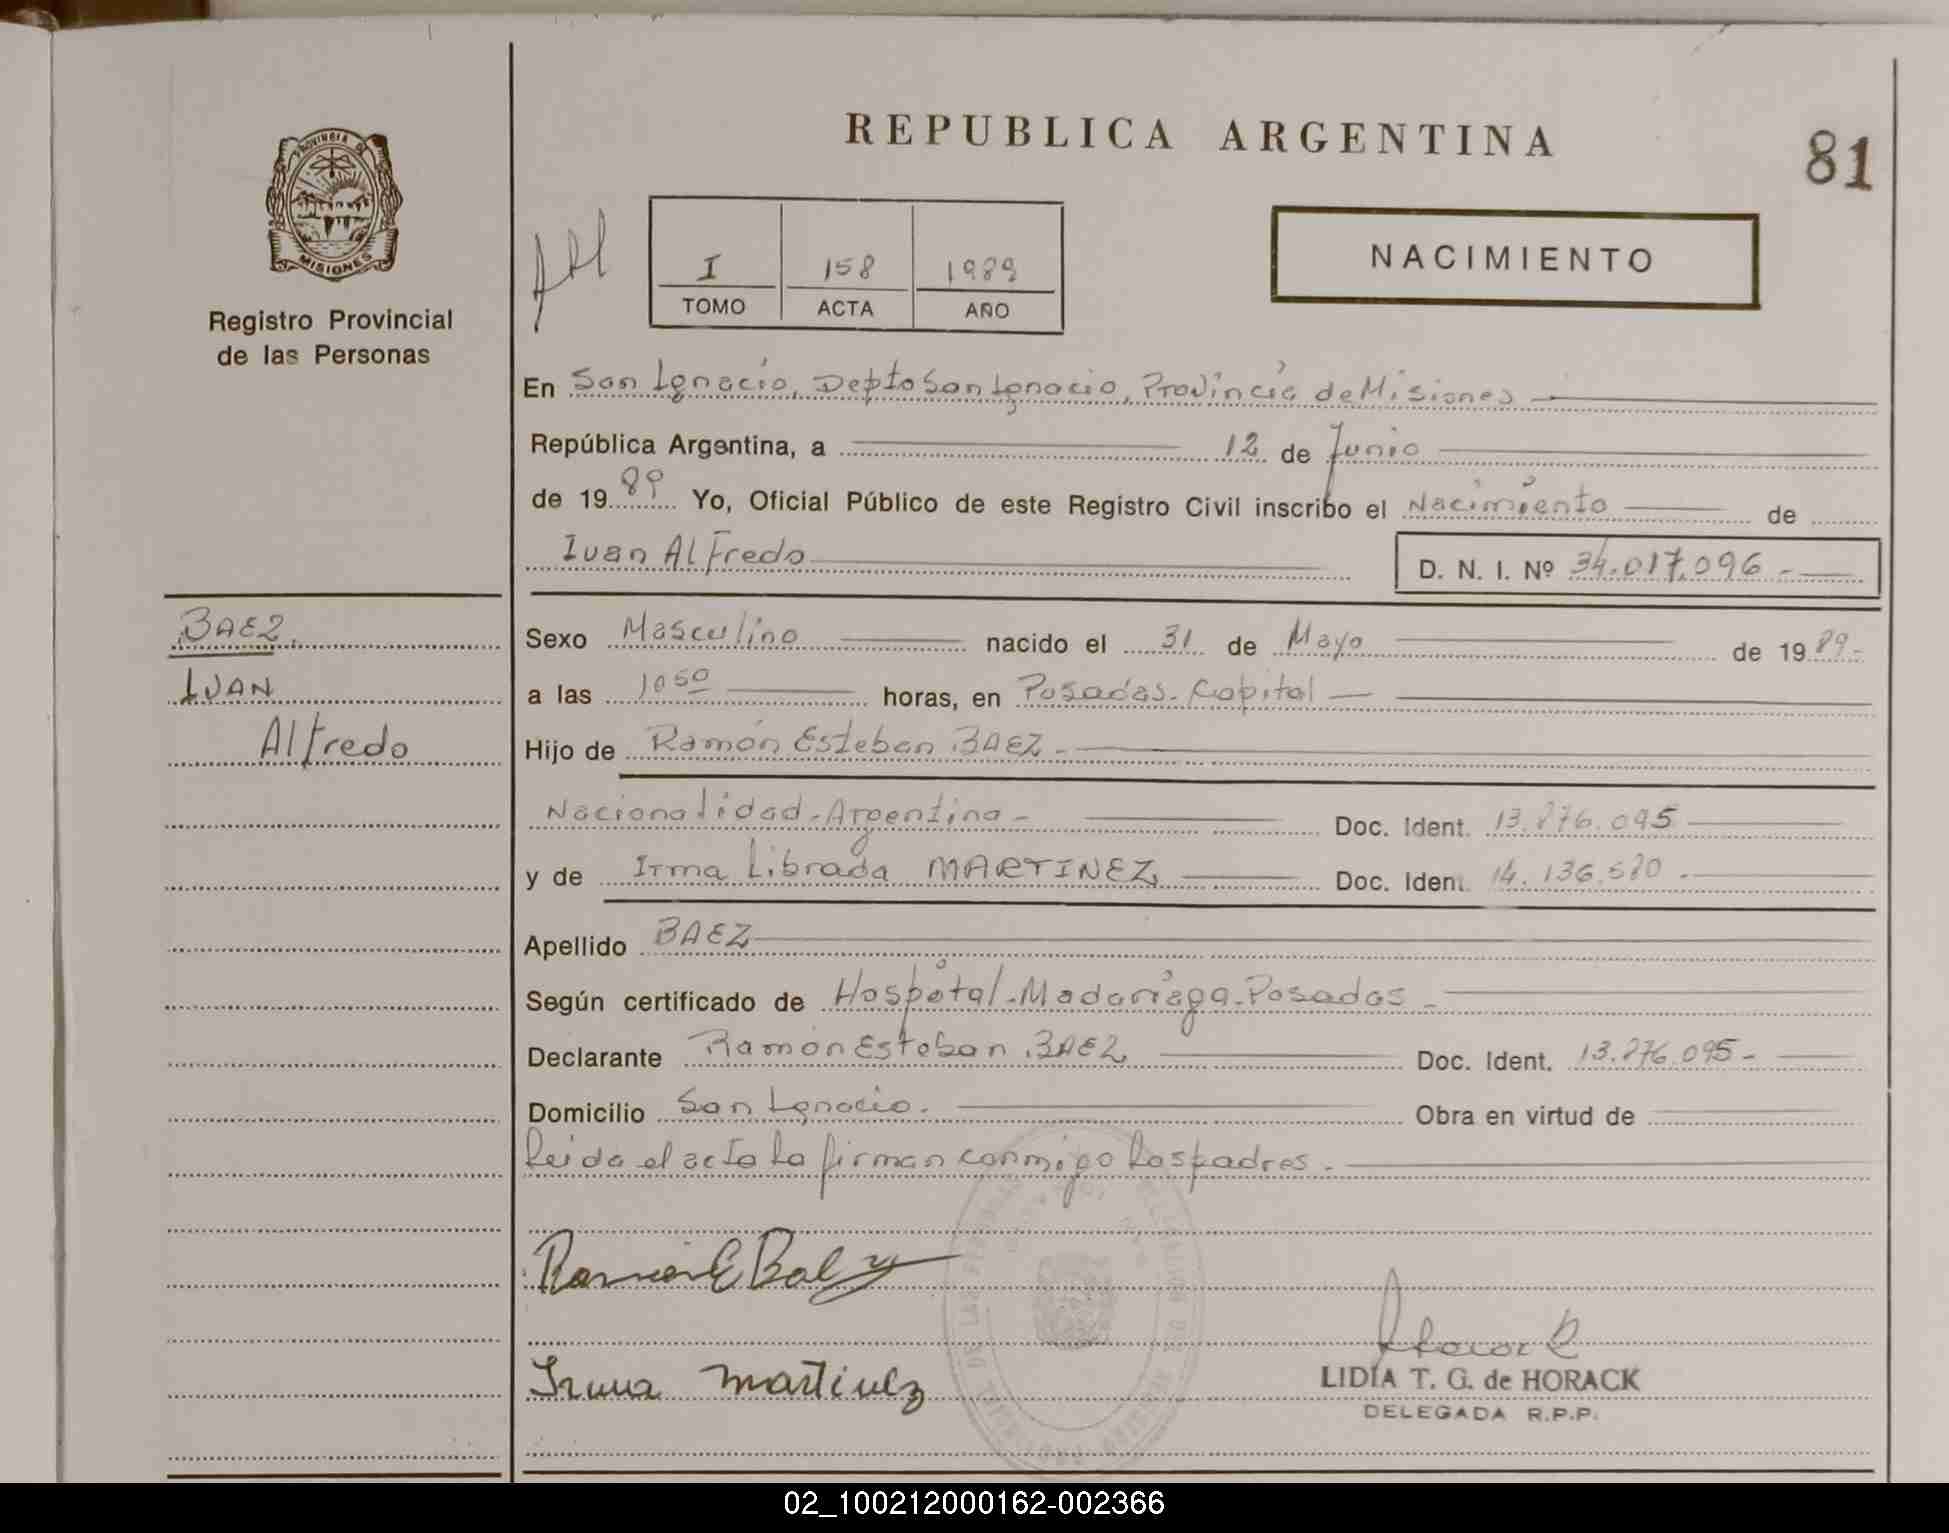 REPUBLICA ARGENTINA
81
PROVINCIA DE
MISIONES
Registro Provincial
de las Personas
I 158 1989
TOMO ACTA AÑO
NACIMIENTO
En San Ignacio, Depto San Ignacio, Provincia de Misiones
República Argentina, a 12 de Junio
de 19 89 Yo, Oficial Público de este Registro Civil inscribo el Nacimiento de
Ivan Alfredo D. N. I. Nº 34.017.096.-
BAEZ.
IVAN
Alfredo
Sexo Masculino nacido el 31 de Mayo de 19 89.-
a las 10 50 horas, en Posadas. Capital
Hijo de Ramón Esteban BAEZ.-
Nacionalidad-Argentina- Doc. Ident. 13.876.095
y de Irma Librada MARTINEZ Doc. Ident. 14.136.580.-
Apellido BAEZ
Según certificado de Hospital-Madariaga-Posadas-
Declarante Ramón Esteban BAEZ Doc. Ident. 13.876.095-
Domicilio San Ignacio. Obra en virtud de
Leida el acta la firman conmigo los padres.-
Ramon E Baez
Irma Martinez
Horack
LIDIA T. G. de HORACK
DELEGADA R.P.P.
02_100212000162-002366